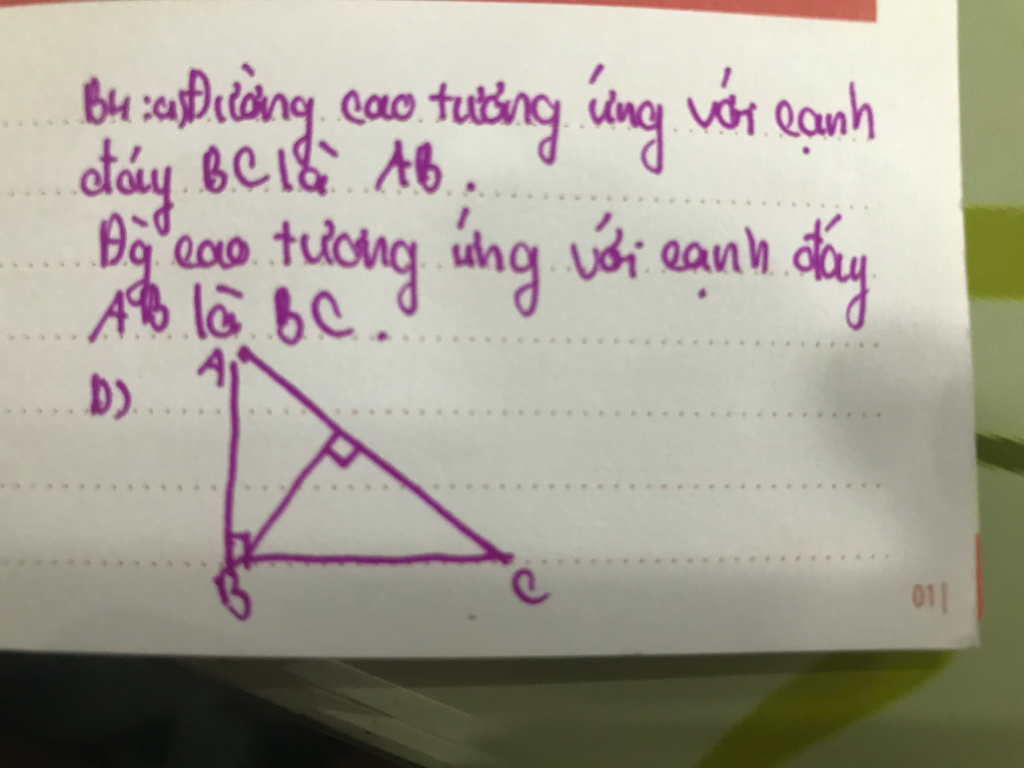 B4: a) Đường cao tương ứng với cạnh
đáy BC là AB.
Đg cao tương ứng với cạnh đáy
AB là BC.
D)
A
B
C
01